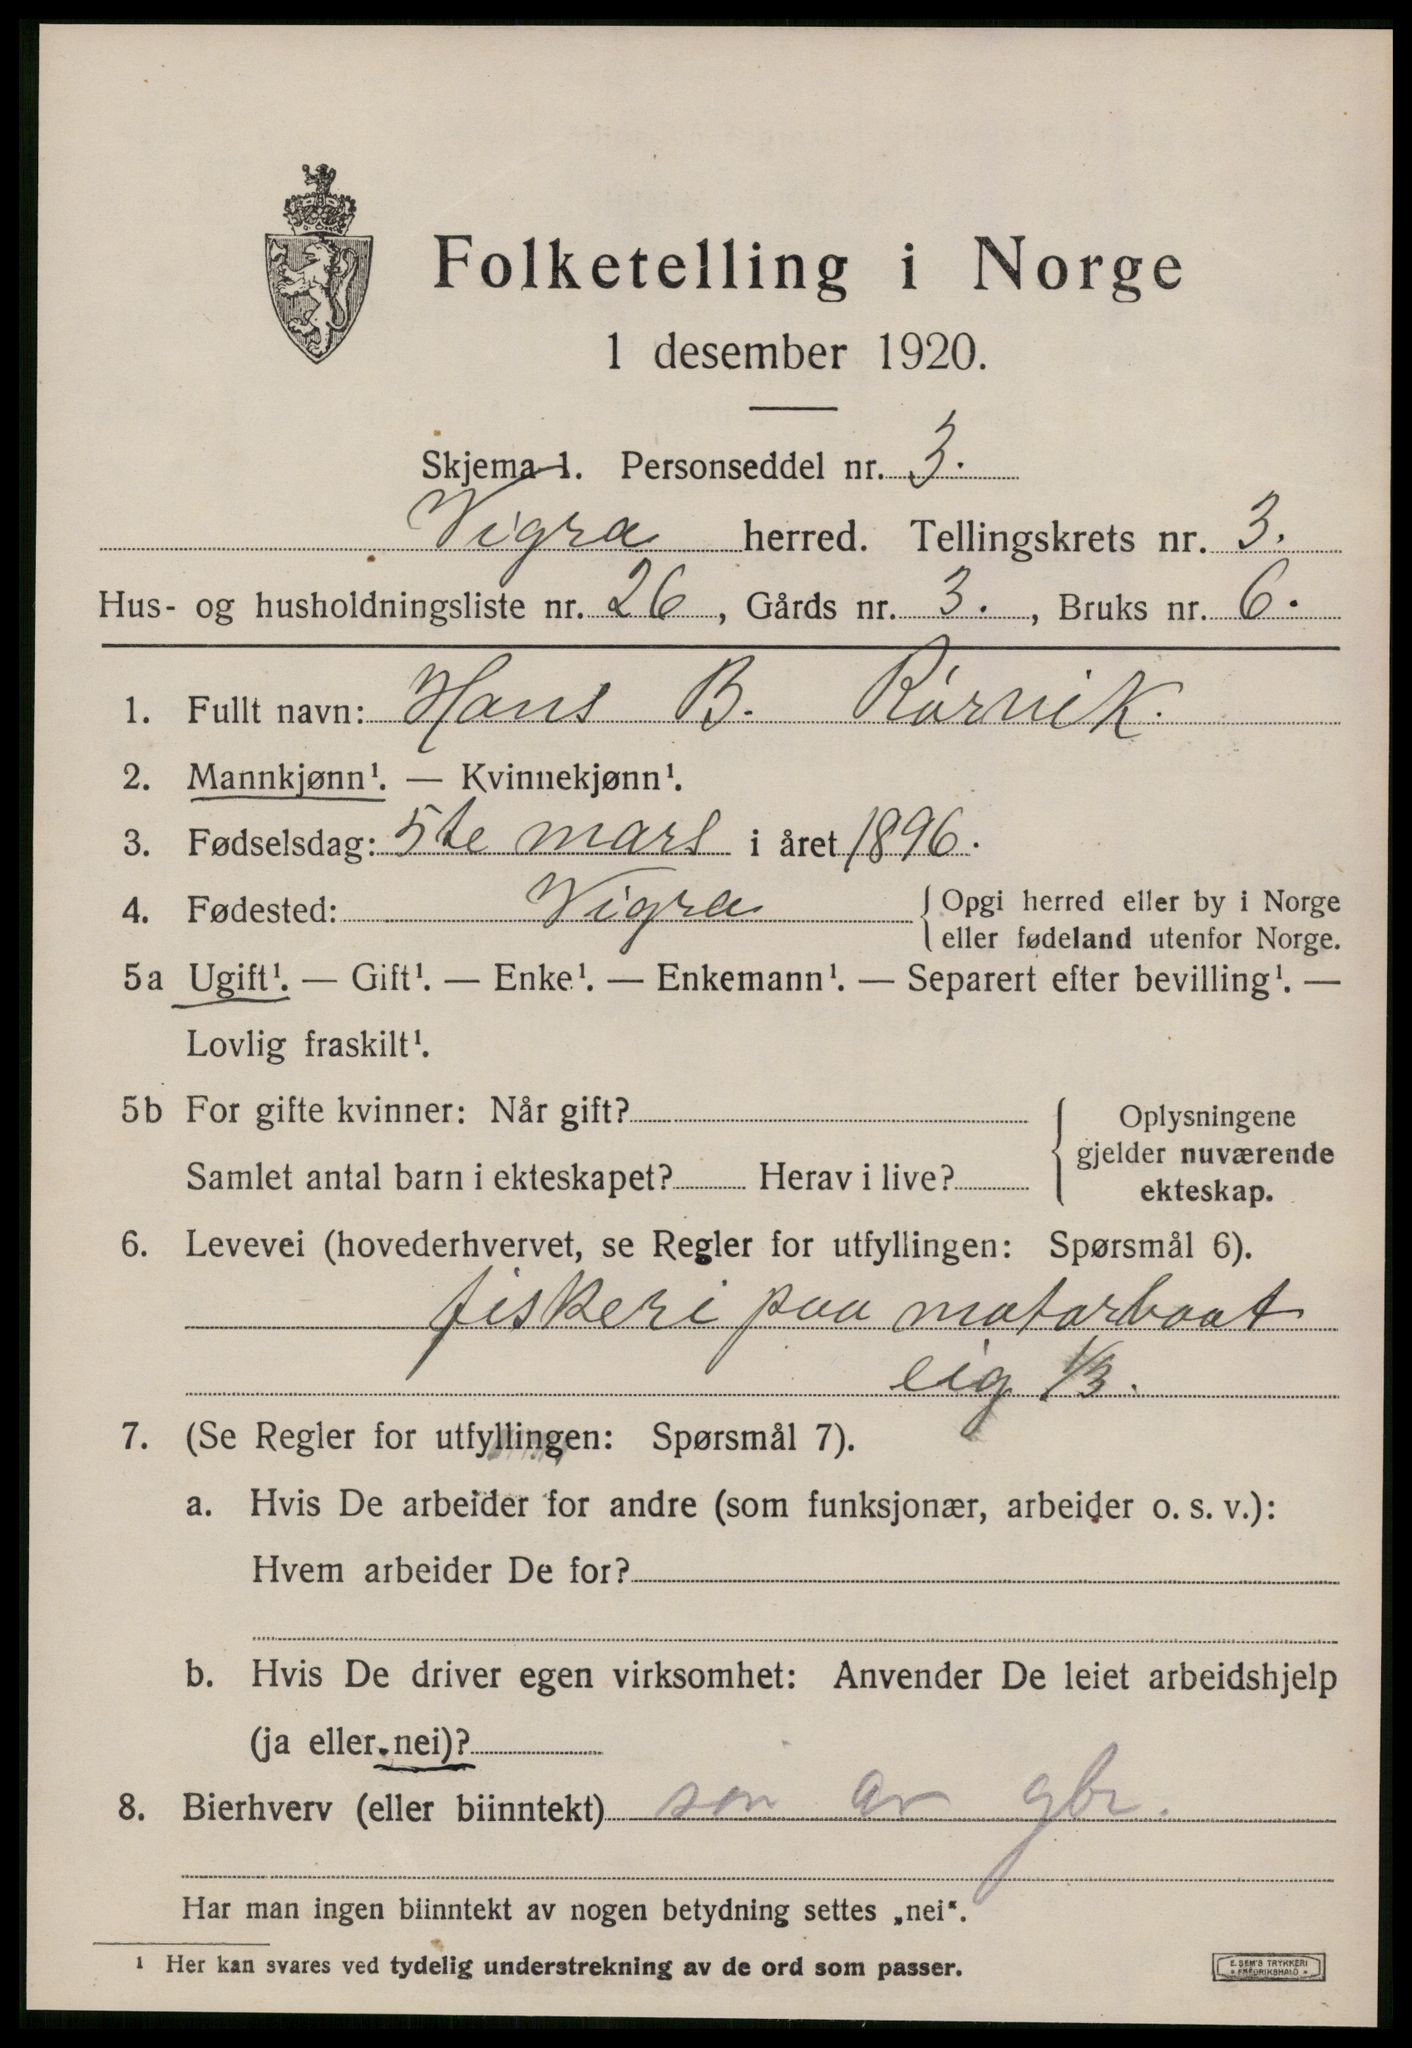 Folketelling i Norge
1 desember 1920.
Skjema 1. Personseddel nr. 3.
Vigra herred. Tellingskrets nr. 3.
Hus- og husholdningsliste nr. 26, Gårds nr. 3., Bruks nr. 6.
1. Fullt navn: Hans B. Rörvik.
2. Mannkjønn¹. — Kvinnekjønn¹.
3. Fødselsdag: 5te mars i året 1896.
4. Fødested: Vigra {Opgi herred eller by i Norge
eller fødeland utenfor Norge.
5a Ugift¹. — Gift¹. — Enke¹. — Enkemann¹. — Separert efter bevilling¹. —
Lovlig fraskilt¹.
5b For gifte kvinner: Når gift?
Samlet antal barn i ekteskapet? Herav i live?
{Oplysningene
gjelder nuværende
ekteskap.
6. Levevei (hovederhvervet, se Regler for utfyllingen: Spørsmål 6).
fiskeri paa motorbaat
eig 1/3.
7. (Se Regler for utfyllingen: Spørsmål 7).
a. Hvis De arbeider for andre (som funksjonær, arbeider o. s. v.):
Hvem arbeider De for?
b. Hvis De driver egen virksomhet: Anvender De leiet arbeidshjelp
(ja eller nei)?
8. Bierhverv (eller biinntekt) søn av gbr.
Har man ingen biinntekt av nogen betydning settes „nei“.
¹ Her kan svares ved tydelig understrekning av de ord som passer.
E. SEM'S TRYKKERI
FREDRIKSHALD